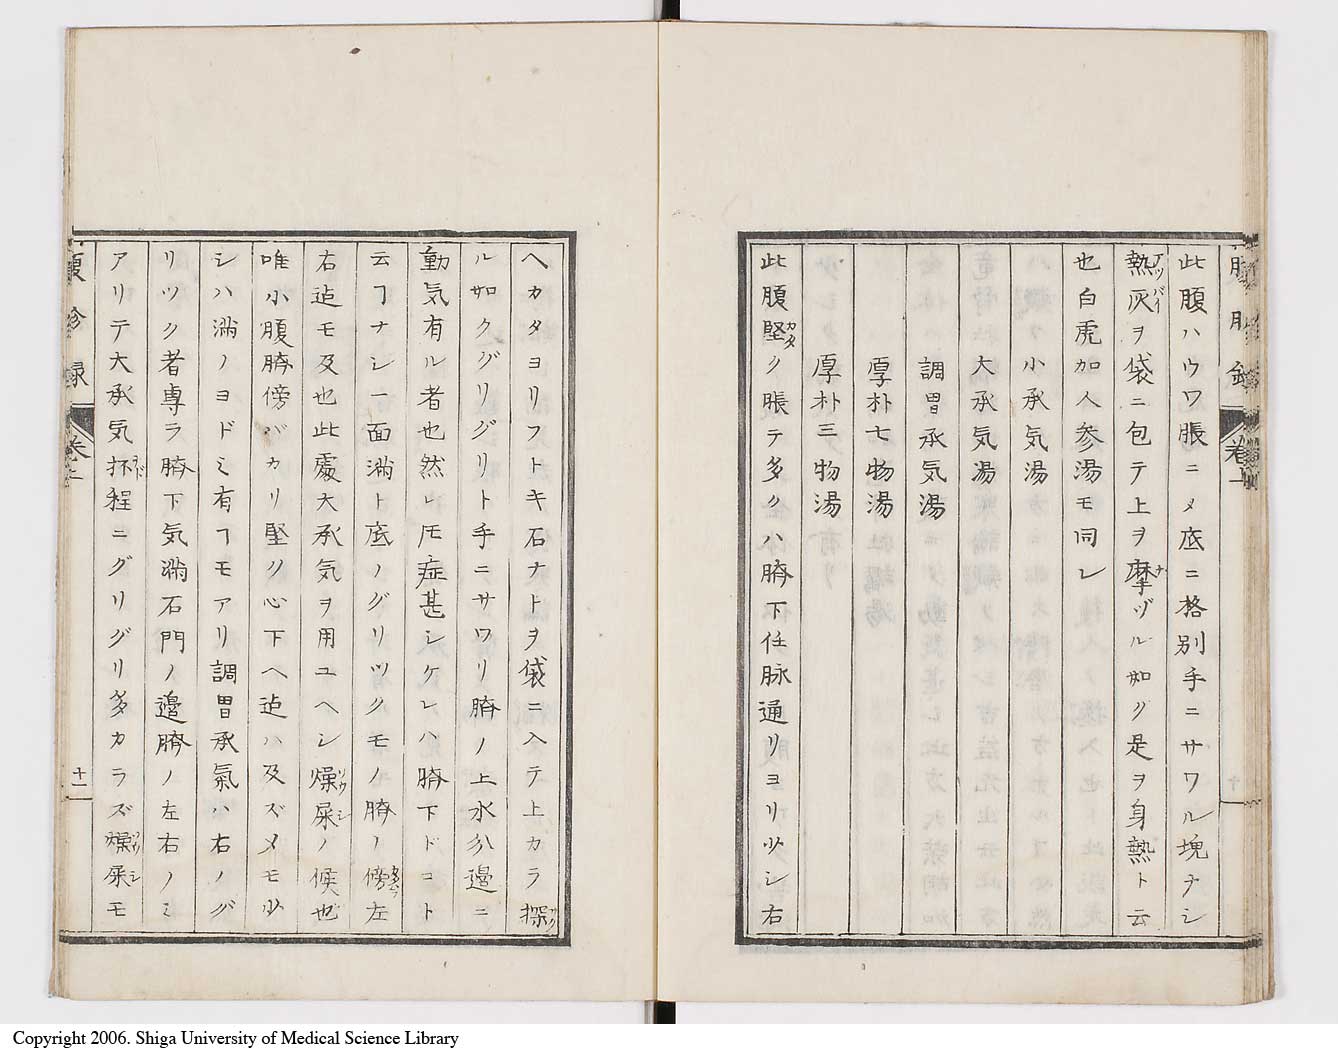 此腹ハウワ脹ニメ底ニ格別手ニサワル塊ナシ
熱灰ヲ袋ニ包テ上ヲ摩ヅル如ク是ヲ身熱ト云
也白虎加人参湯モ同レ
小承気湯
大承気湯
調胃承気湯
厚朴七物湯
厚朴三物湯
此腹堅ク脹テ多クハ臍下任脉通リヨリ少シ右
ヘカタヨリフトキ石ナトヲ袋ニ入テ上カラ探
ル如クグリグリト手ニサワリ臍ノ上水分邉ニ
動気有ル者也然レ𪜈症甚シケレハ臍下ドコト
云ヿナシ一面満ト底ノグリツクモノ臍ノ傍左
右迠モ及也此處大承気ヲ用ユヘシ燥屎ノ候也
唯小腹臍傍バカリ堅ク心下ヘ迠ハ及ズメモ少
シハ満ノヨドミ有ヿモアリ調胃承氣ハ右ノグ
リツク者専ラ臍下気満石門ノ邉臍ノ左右ノミ
アリテ大承気抔程ニグリグリ多カラズ燥屎モ
腹診録
卷一
十一
Copyright 2006. Shiga University of Medical Science Library